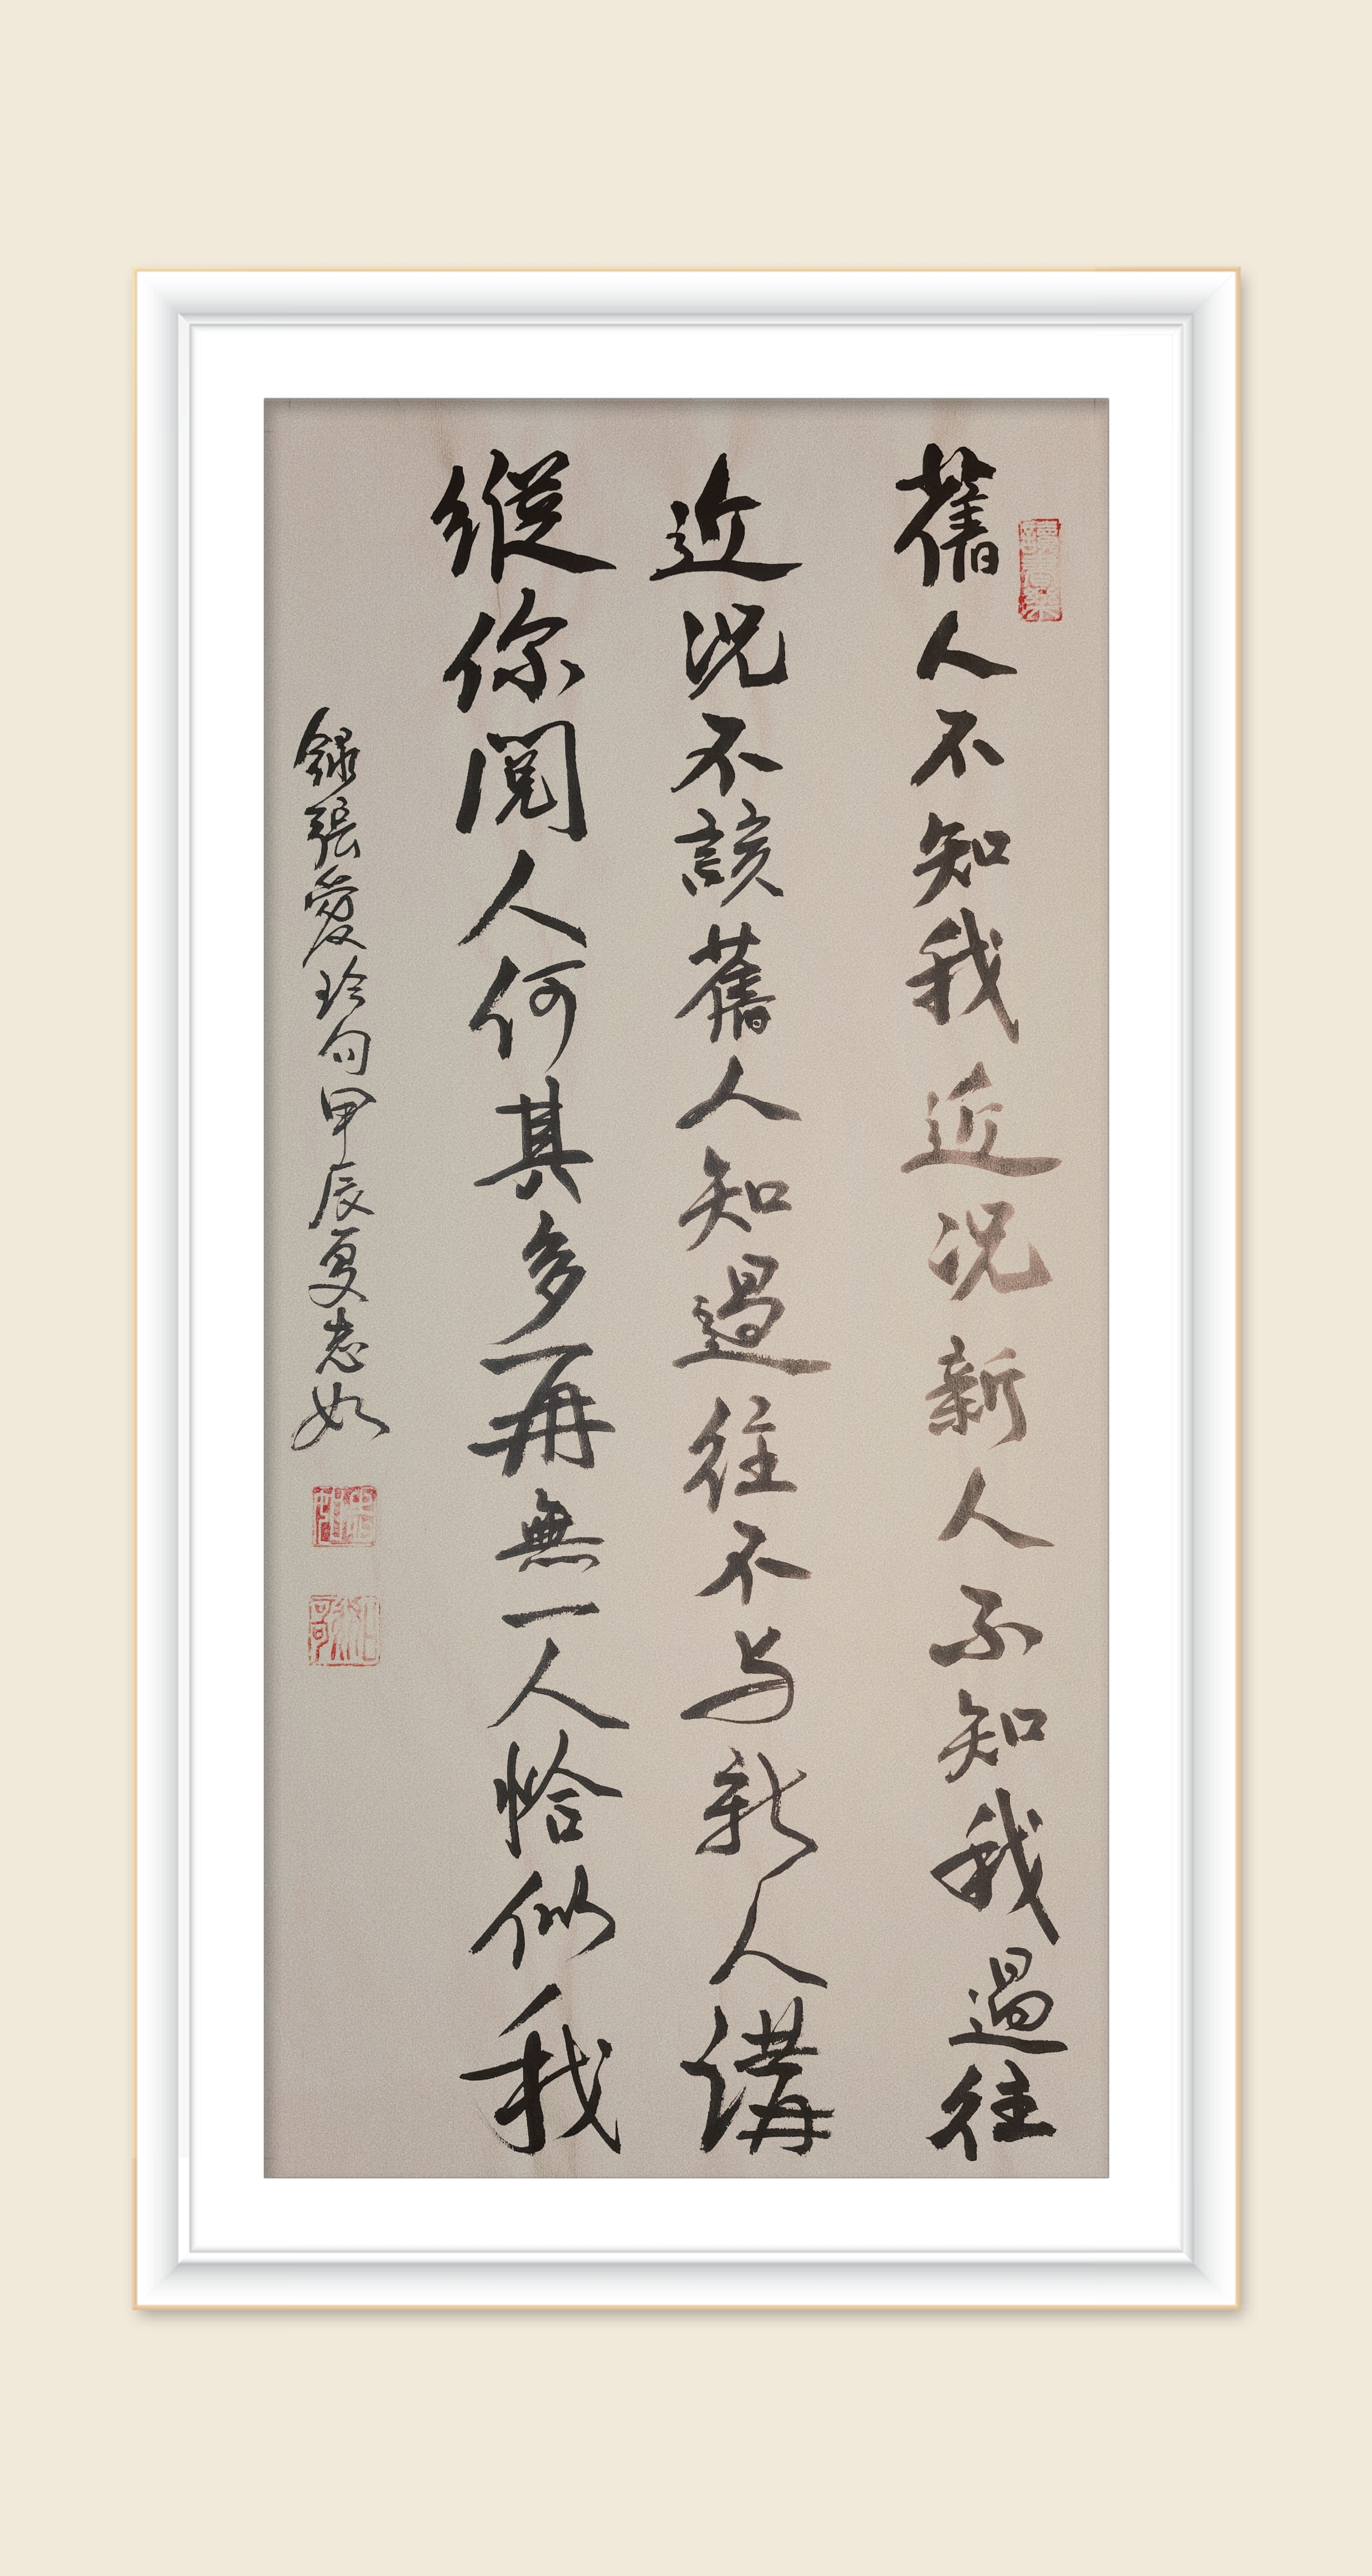 舊人不知我近況新人不知我過往
近況不該舊人知過往不与新人講
縱你閱人何其多再無一人恰似我
録張愛玲句甲辰夏志如